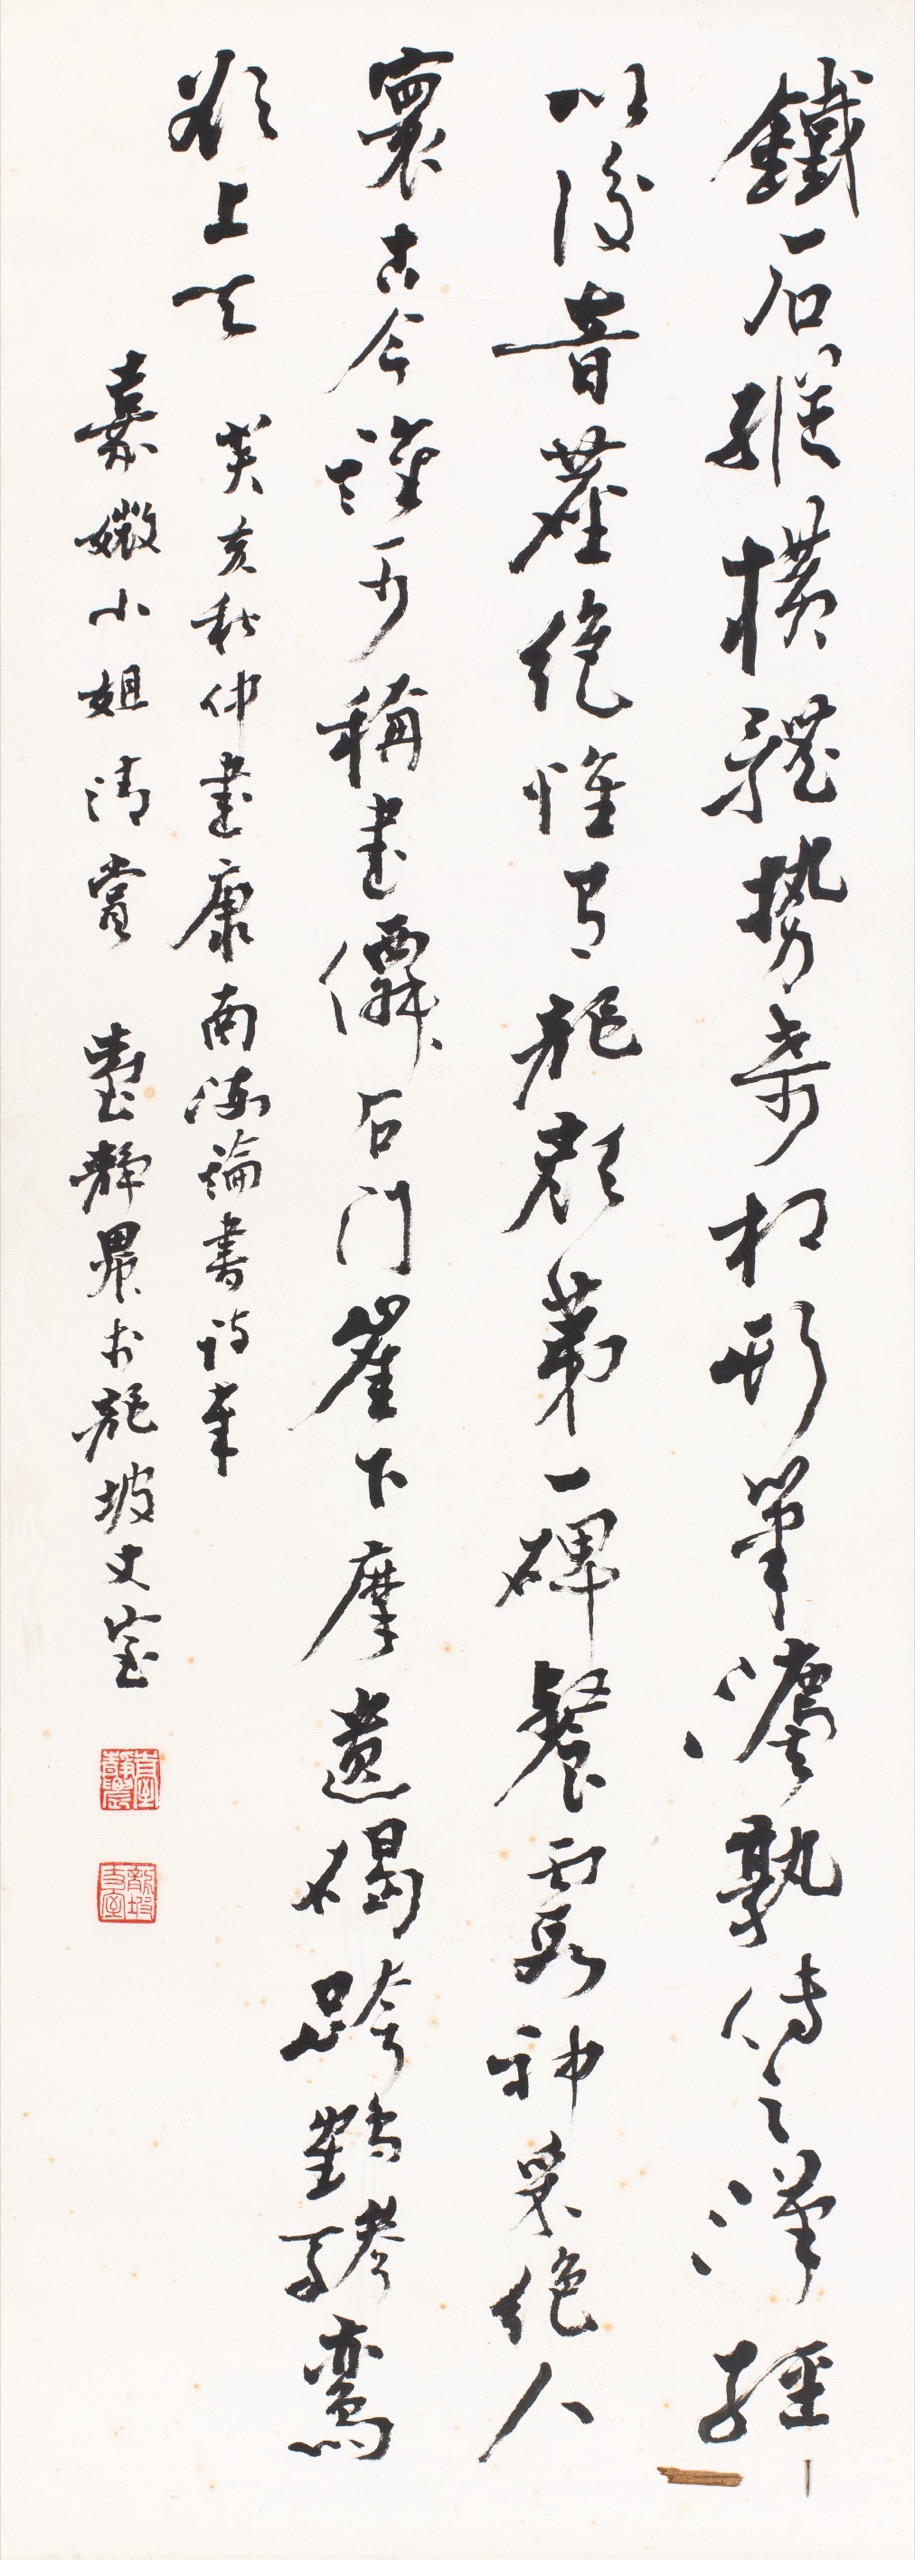 鐵石縱橫體勢奇相斯筆灋孰傳之漢經
以後音塵絕惟有龍顏第一碑餐霞神采絕人
寰古今誰可稱書僊石門崖下摩遺碣跨鶴驂鸞
欲上天 癸亥秋仲書康南海論書詩章
嘉媺小姐清賞 臺靜農於龍坡丈室
臺靜農
龍坡丈室